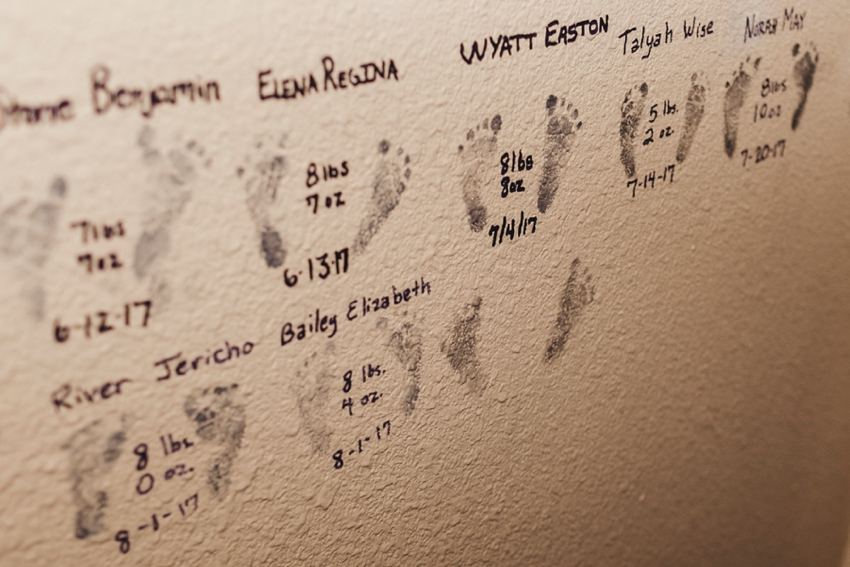 Benjamin
7lbs
7oz
6-12-17
ELENA REGINA
8lbs
7oz
6-13-17
WYATT EASTON
8lbs
8oz
7/4/17
Talyah Wise
5 lbs.
2 oz.
7-14-17
NORAH MAY
8lbs
10oz
7-20-17
River Jericho
8 lbs.
0 oz.
8-1-17
Bailey Elizabeth
8 lbs.
4 oz.
8-1-17